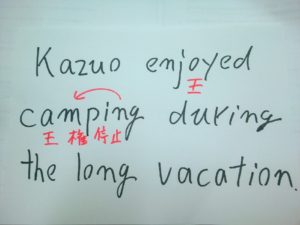 Kazuo enjoyed
王
camping during
王 権 停止
the long vacation.